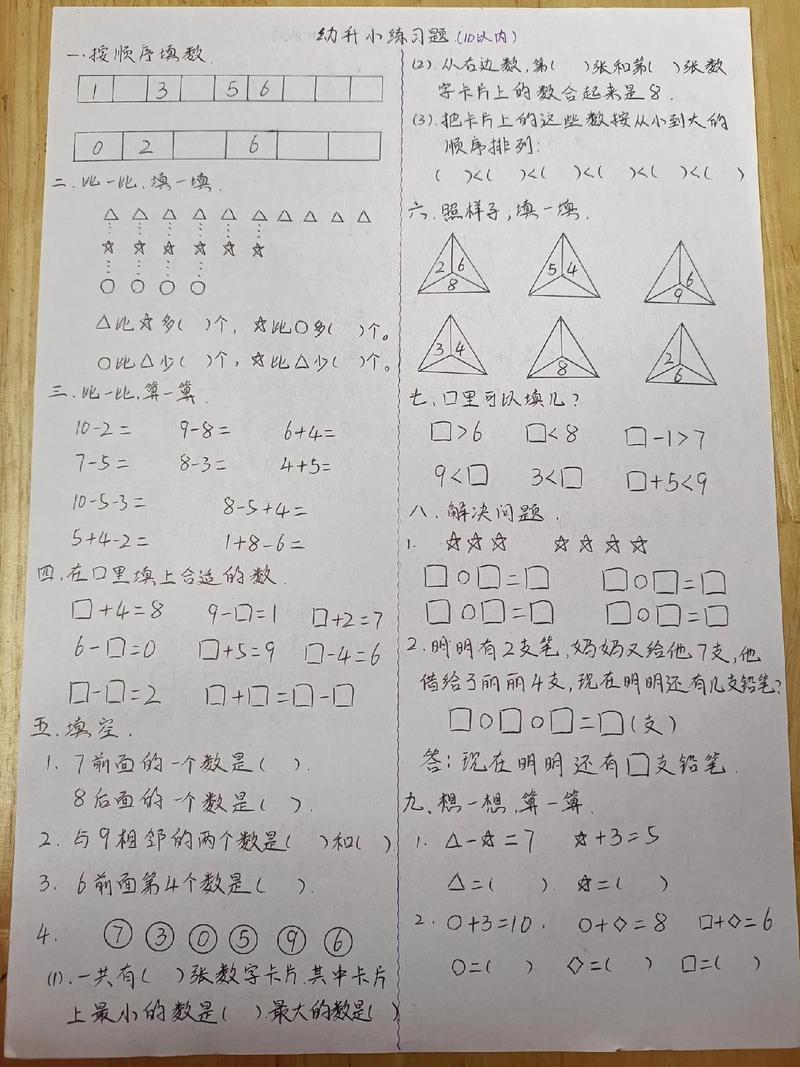 幼升小练习题(10以内)
一.按顺序填数.
1 3 5 6
0 2 6
二.比一比,填一填.
△△△△△△△△△△
☆☆☆☆☆☆
○○○○
△比☆多( )个,☆比○多( )个。
○比△少( )个,☆比△少( )个。
三.比一比,算一算.
10-2= 9-8= 6+4=
7-5= 8-3= 4+5=
10-5-3= 8-5+4=
5+4-2= 1+8-6=
四.在口里填上合适的数.
□+4=8 9-□=1 □+2=7
6-□=0 □+5=9 □-4=6
□-□=2 □+□=□-□
五.填空.
1. 7前面的一个数是( ).
8后面的一个数是( ).
2. 与9相邻的两个数是( )和( ).
3. 6前面第4个数是( ).
4. ⑦ ③ ⓪ ⑤ ⑨ ⑥
(1).一共有( )张数字卡片.其中卡片
上最小的数是( ).最大的数是( )
(2).从右边数,第( )张和第( )张数
字卡片上的数合起来是8.
(3).把卡片上的这些数按从小到大的
顺序排列:
( )<( )<( )<( )<( )<( )
六.照样子,填一填.
2 6 8 5 4 6 9
3 4 8 2 6
七.口里可以填几?
□>6 □<8 □-1>7
9<□ 3<□ □+5<9
八.解决问题.
1. ☆☆☆ ☆☆☆☆
□○□=□ □○□=□
□○□=□ □○□=□
2.明明有2支笔,妈妈又给他7支,他
借给了丽丽4支,现在明明还有几支铅笔?
□○□○□=□(支)
答:现在明明还有□支铅笔.
九、想一想,算一算.
1. △-☆=7 ☆+3=5
△=( ). ☆=( )
2. ○+3=10. ○+◇=8 □+◇=6
○=( ) ◇=( ) □=( )